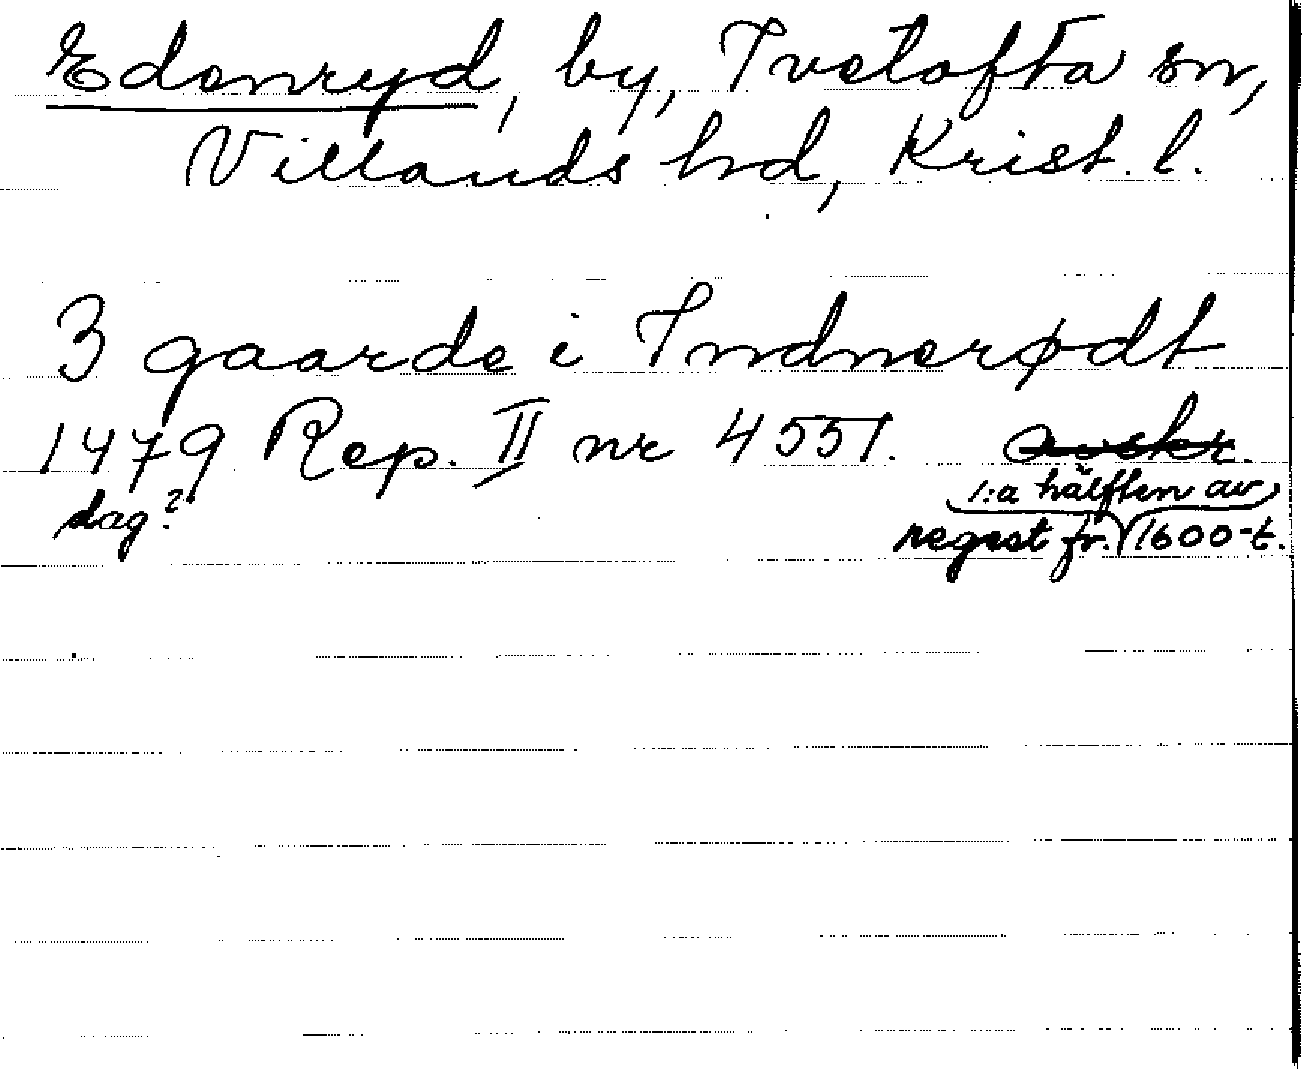 Edenryd, by, Ivetofta sn,
Villands hd, Krist. l.
3 gaarde i Indnerødt
1479 Rep. II nr 4551. avskr.
dag? 1:a hälften av
regest fr. 1600-t.